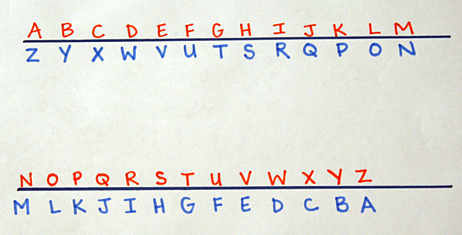 A B C D E F G H I J K L M
Z Y X W V U T S R Q P O N
N O P Q R S T U V W X Y Z
M L K J I H G F E D C B A